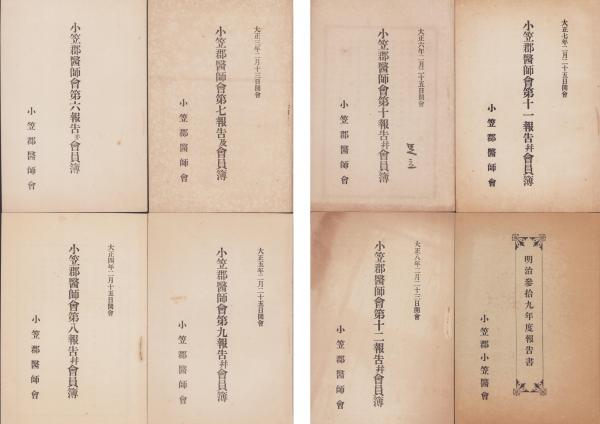 小笠郡醫師會第六報告并會員簿
小笠郡醫師會
大正三年二月十三日開會
小笠郡醫師會第七報告及會員簿
小笠郡醫師會
大正六年二月二十五日開會
小笠郡醫師會第十報告并會員簿
小笠郡醫師會
大正七年二月二十五日開會
小笠郡醫師會第十一報告并會員簿
小笠郡醫師會
大正四年二月十五日開會
小笠郡醫師會第八報告并會員簿
小笠郡醫師會
大正五年二月二十五日開會
小笠郡醫師會第九報告并會員簿
小笠郡醫師會
大正八年二月二十三日開會
小笠郡醫師會第十二報告并會員簿
小笠郡醫師會
明治參拾九年度報告書
小笠郡小笠醫會